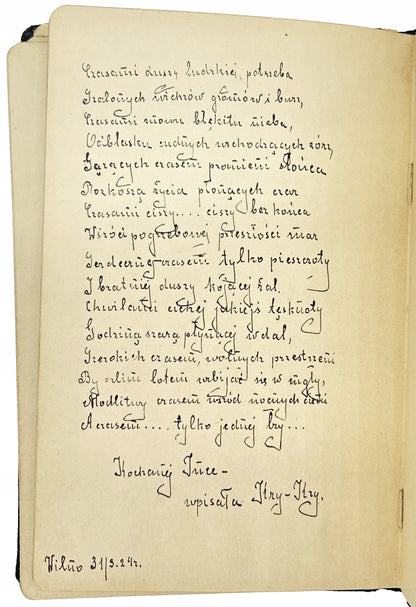 Czasami duszy ludzkiej, potrzeba
Szalonych wichrów gromów i burz,
Czasami znowu błękitu nieba,
Odblasku cudnych wschodzących zórz,
Gorących czasem promieni słońca
Rozkoszą życia płonących czar
Czasami ciszy.... ciszy bez końca
Wśród pogrzebowej przeszłości mar
Serdecznej czasem tylko pieszczoty
I bratniej duszy kojącej żal.
Chwilami cichej jakiejś tęsknoty
Godziną szarą płynącej w dal,
Szerokich czasem, wolnych przestrzeni
By orlim lotem wbijać się w mgły,
Modlitwy czasem wśród nocnych cieni
A czasem.... tylko jednej łzy...
Kochanej Ince -
wpisała Kry-Kry.
Wilno 31/3.24r.